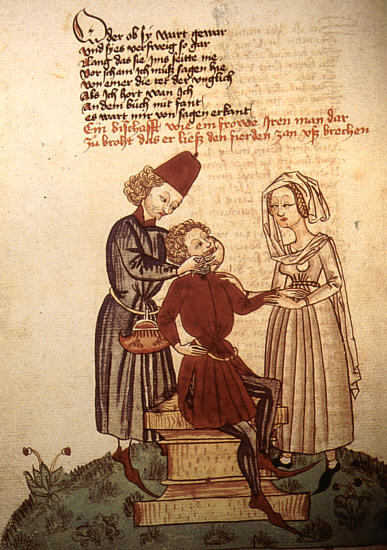 Oder ob sÿ wart gewar
Und syes versweig so gar
Lang das sie ims seitte me
Vor scham Ich muß sagen hie
Von einer die tet der unglich
Als Ich hort wan Ich
An dem buch mit fant
es wart mir von sagen erkant
Ein bischafft wie ein frowe Iren man dar
Zu broht das er ließ den fierden zan uß brechen